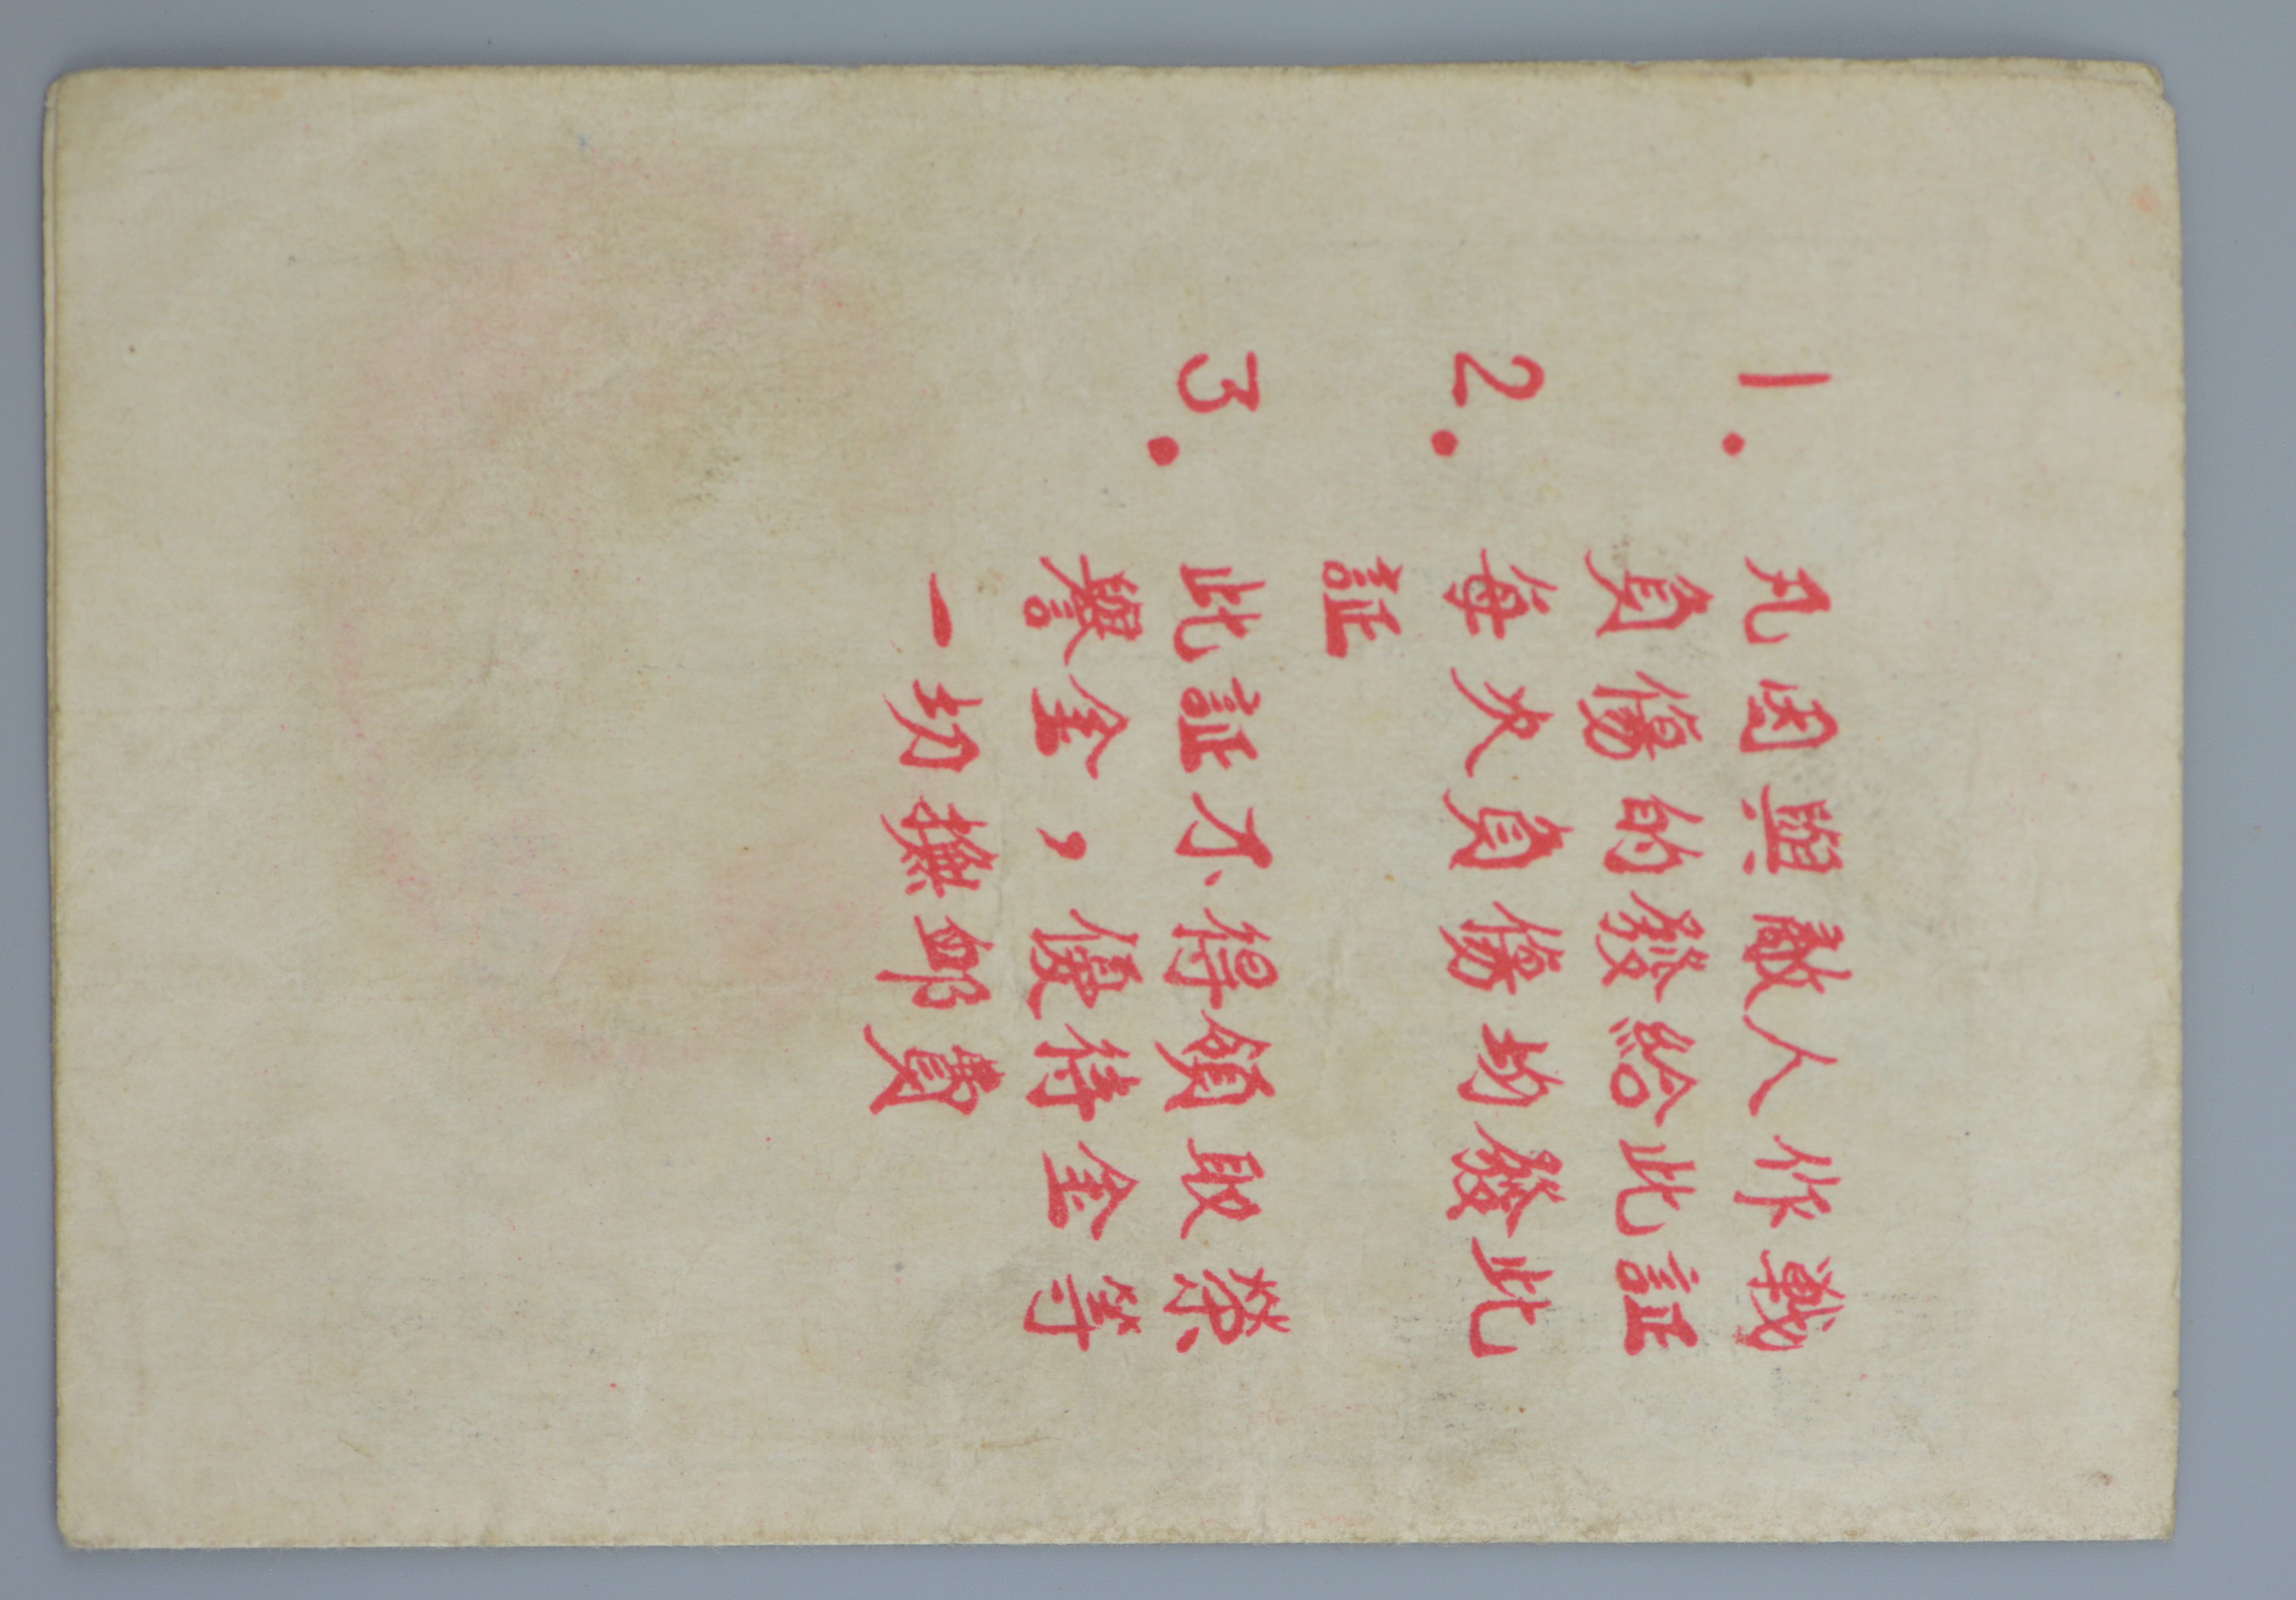 1. 凡因與敵人作戦
負傷的發給此証
2. 每次負傷均發此
証
3. 此証不得領取榮
譽金，優待金等
一切撫卹費